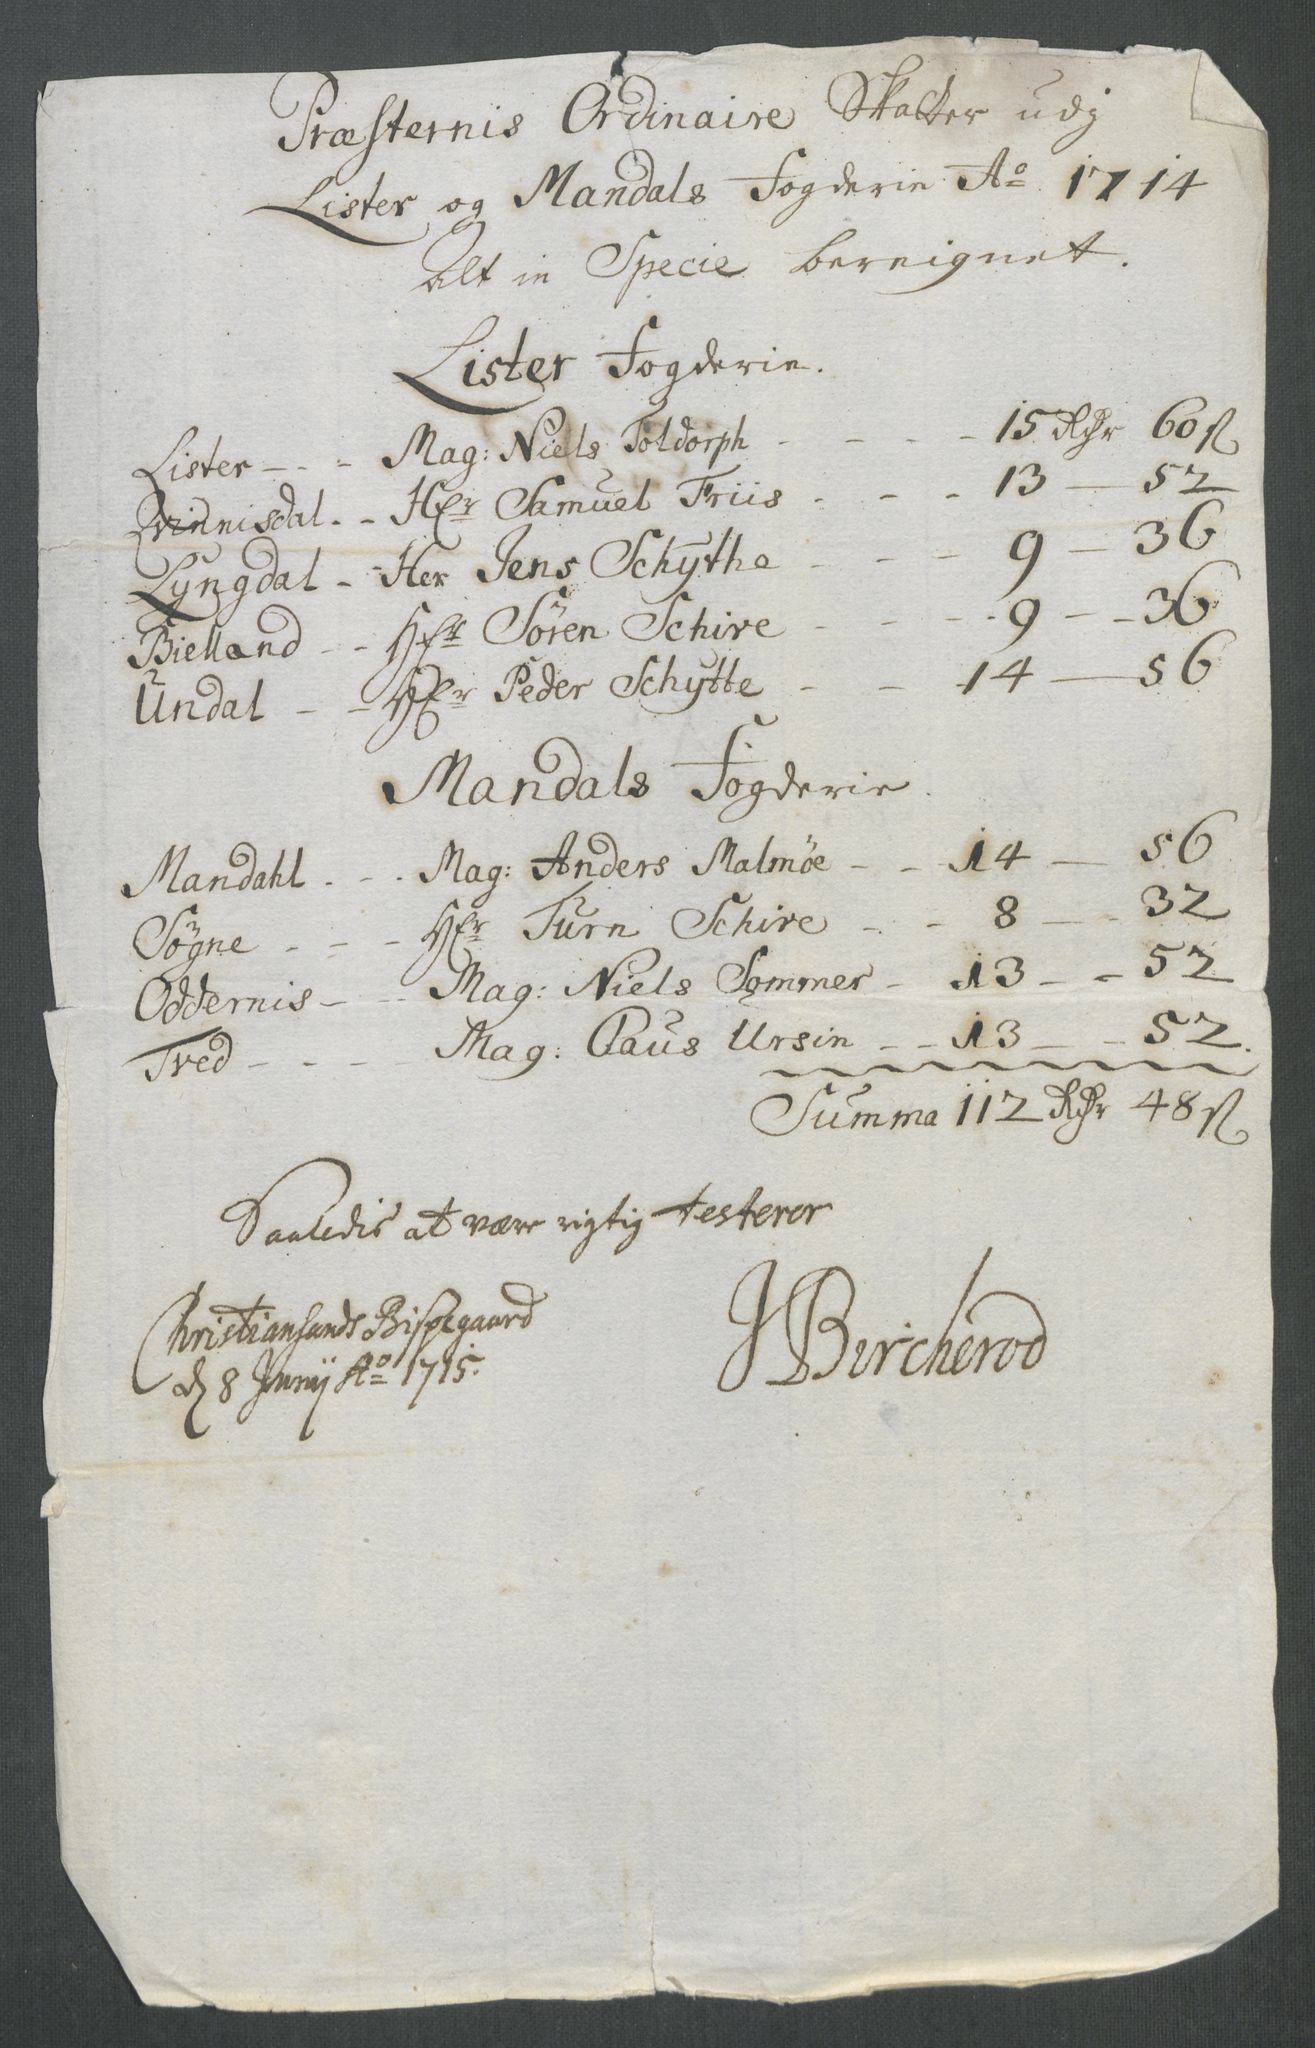 Præsternis Ordinaire Skatter udj
Lister og Mandals Fogderie Ao 1714
Alt in Specie bereignet.
Lister Fogderie.
Lister - - - Mag: Niels Toldorph - - - - 15 Rdr 60 ß
Qvinnisdal - - Hr Samuel Friis - - - 13 - 52
Lyngdal - - Her Jens Schytte - - - 9 - 36
Bielland - - Hr Sören Schive - - - 9 - - 36
Undal - - Hr Peder Schytte - - 14 - 56
Mandals Fogderie.
Mandahl - - - Mag: Anders Malmöe - - 14 - 56
Sögne - - - Hr Turn Schive - - 8 - - 32
Oddernis - - - Mag: Niels Sommer - 13 - - 52
Tved - - - Mag: Claus Ursin - - 13 - - 52.
Summa 112 Rdr 48 ß
Saaledis at være rigtig testerer
Christiansands Bispegaard
d 8 Junij Ao 1715.
J Bircherod